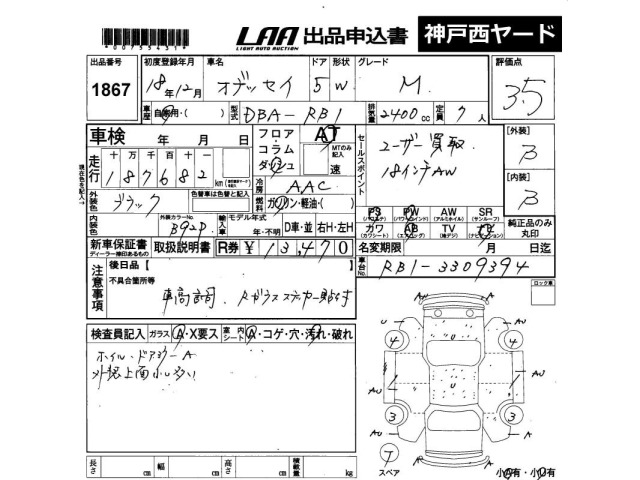 *00755431*
LAA 出品申込書 神戸西ヤード
LIGHT AUTO AUCTION
出品番号 初度登録年月 車名 ドア 形状 グレード 評価点
1867 18年12月 オデッセイ 5 W M 3.5
車歴 自家用・( ) 型式 DBA-RB1 排気量 2400cc 定員 7人
車検 年 月 日
フロア・コラム ダッシュ AT
MTのみ記入 速
セールスポイント
ユーザー買取
18インチAW
[外装] B
[内装] B
走行 十 万 千 百 十
187682 km
現在色を記入→
冷房 AAC
外装色 ブラック 色替車は色替と記入
燃料 ガソリン・軽油・( )
内装色 外装カラーNo. B92P 輸入車 モデル年式 年・不明 D車・並 右H・左H
PS PW AW SR
(パワステ) (パワーウインド) (アルミホイル) (サンルーフ)
カワ AB TV ナビ
(カワシート) (エアバッグ) (地デジ) (ナビゲーション)
純正品のみ丸印
新車保証書 取扱説明書 R券 ¥13,470
ディーラー捺印あるもの
名変期限 月 日迄
車台No. RB1-3309394
注意事項
後日品【
不具合箇所等
車高調 Rガラスステッカー貼付
ロック車
検査員記入 ガラス A・X要ス 室内シート A・コゲ・穴・汚れ・破れ
ホイル・ドアミラーA
外装上面小キズ多い
4 4
3 3
AU
U
A
T
スペア
小A有・小U有
長さ cm 幅 cm 高さ cm 積載量 kg